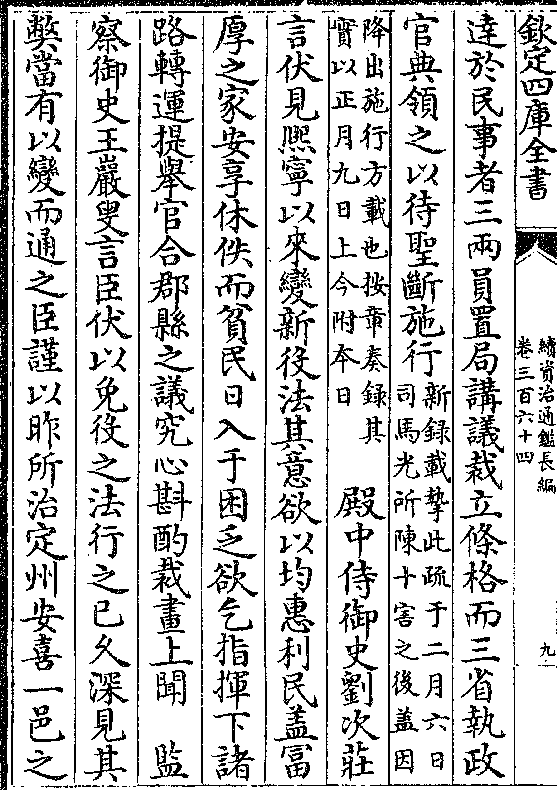 欽定四庫全書
續資治通鑑長編
卷三百六十四
九
達於民事者三兩員置局講議裁立條格而三省執政
官典領之以待聖斷施行新錄載摯此疏于二月六日
司馬光所陳十害之後蓋因
降出施行方載也按章奏錄其
實以正月九日上今附本日
殿中侍御史劉次莊
言伏見熈寧以來變新役法其意欲以均惠利民蓋富
厚之家安享休佚而貧民日入于困乏欲乞指揮下諸
路轉運提舉官合郡縣之議究心斟酌裁畫上聞　監
察御史王巖叟言臣伏以免役之法行之已久深見其
弊當有以變而通之臣謹以昨所治定州安喜一邑之